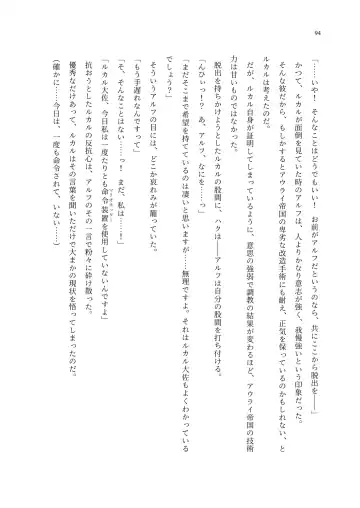 94
「……いや！　そんなことはどうでもいい！　お前がアルフだというのなら、共にここから脱出を――」
かつて、ルカルが面倒を見ていた時のアルフは、人よりかなり意志が強く、我慢強いという印象だった。
そんな彼だから、もしかするとアウライ帝国の卑劣な改造手術にも耐え、正気を保っているのかもしれない、と
ルカルは考えたのだ。
だが、ルカル自身が証明してしまっているように、意思の強弱で調教の結果が変わるほど、アウライ帝国の技術
力は甘いものではなかった。
脱出を持ち掛けようとしたルカルの股間に、ハクは――アルフは自分の股間を打ち付ける。
「んひぃっ！？　あ、アルフ、なにを……っ」
「まだそこまで希望を持てているのは凄いと思いますが……無理ですよ。それはルカル大佐もよくわかっている
でしょう？」
そういうアルフの目には、どこか哀れみが籠っていた。
「もう手遅れなんですって」
「そ、そんなことはない……っ！　まだ、私は……！」
「ルカル大佐、今日私は一度たりとも命令装置を使用していないんですよ」
抗おうとしたルカルの反抗心は、アルフのその一言で粉々に砕け散った。
優秀なだけあって、ルカルはその言葉を聞いただけで大まかの現状を悟ってしまったのだ。
（確かに……今日は、一度も命令されて、いない……っ）